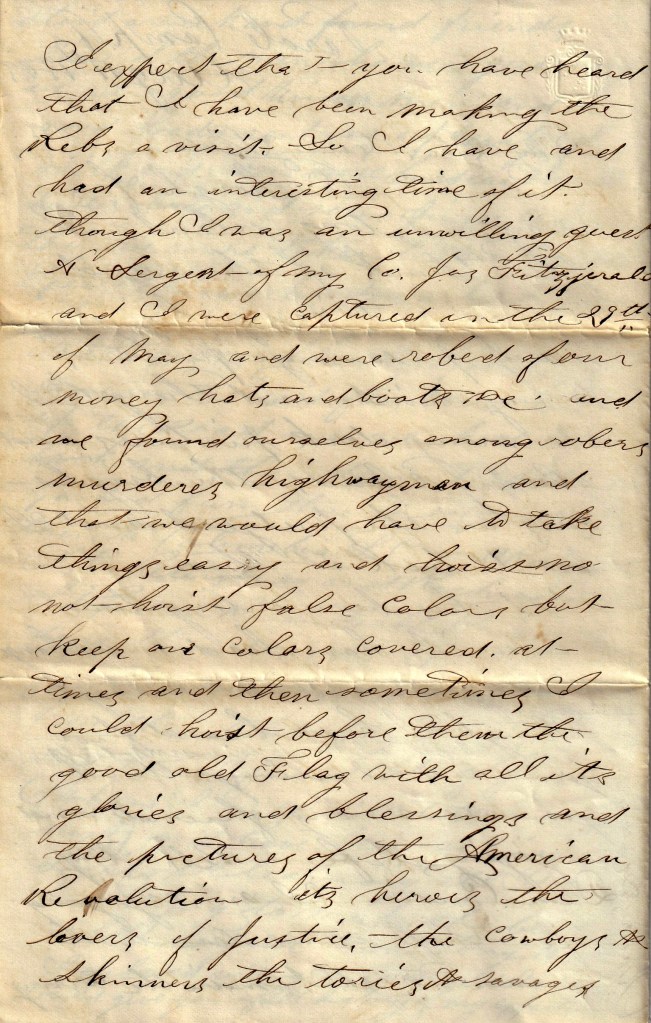 I expect that you have heard
that I have been making the
Rebs a visit. So I have and
had an interesting time of it.
though I was an unwilling guest
A Sergent of my Co. Jas Fitzgerald
and I were captured on the 29th
of May and were robed of our
money hats and boots &c. and
we found ourselves among robers
murderes highwayman and
that we would have to take
things easy and hoist no
not hoist false colors but
keep our colors covered. at
times and then sometimes I
could hoist before them the
good old Flag with all its
glories and blessings and
the pictures of the American
Revolution its heroes the
lovers of Justice, the cowboys &
skinners the tories & savages